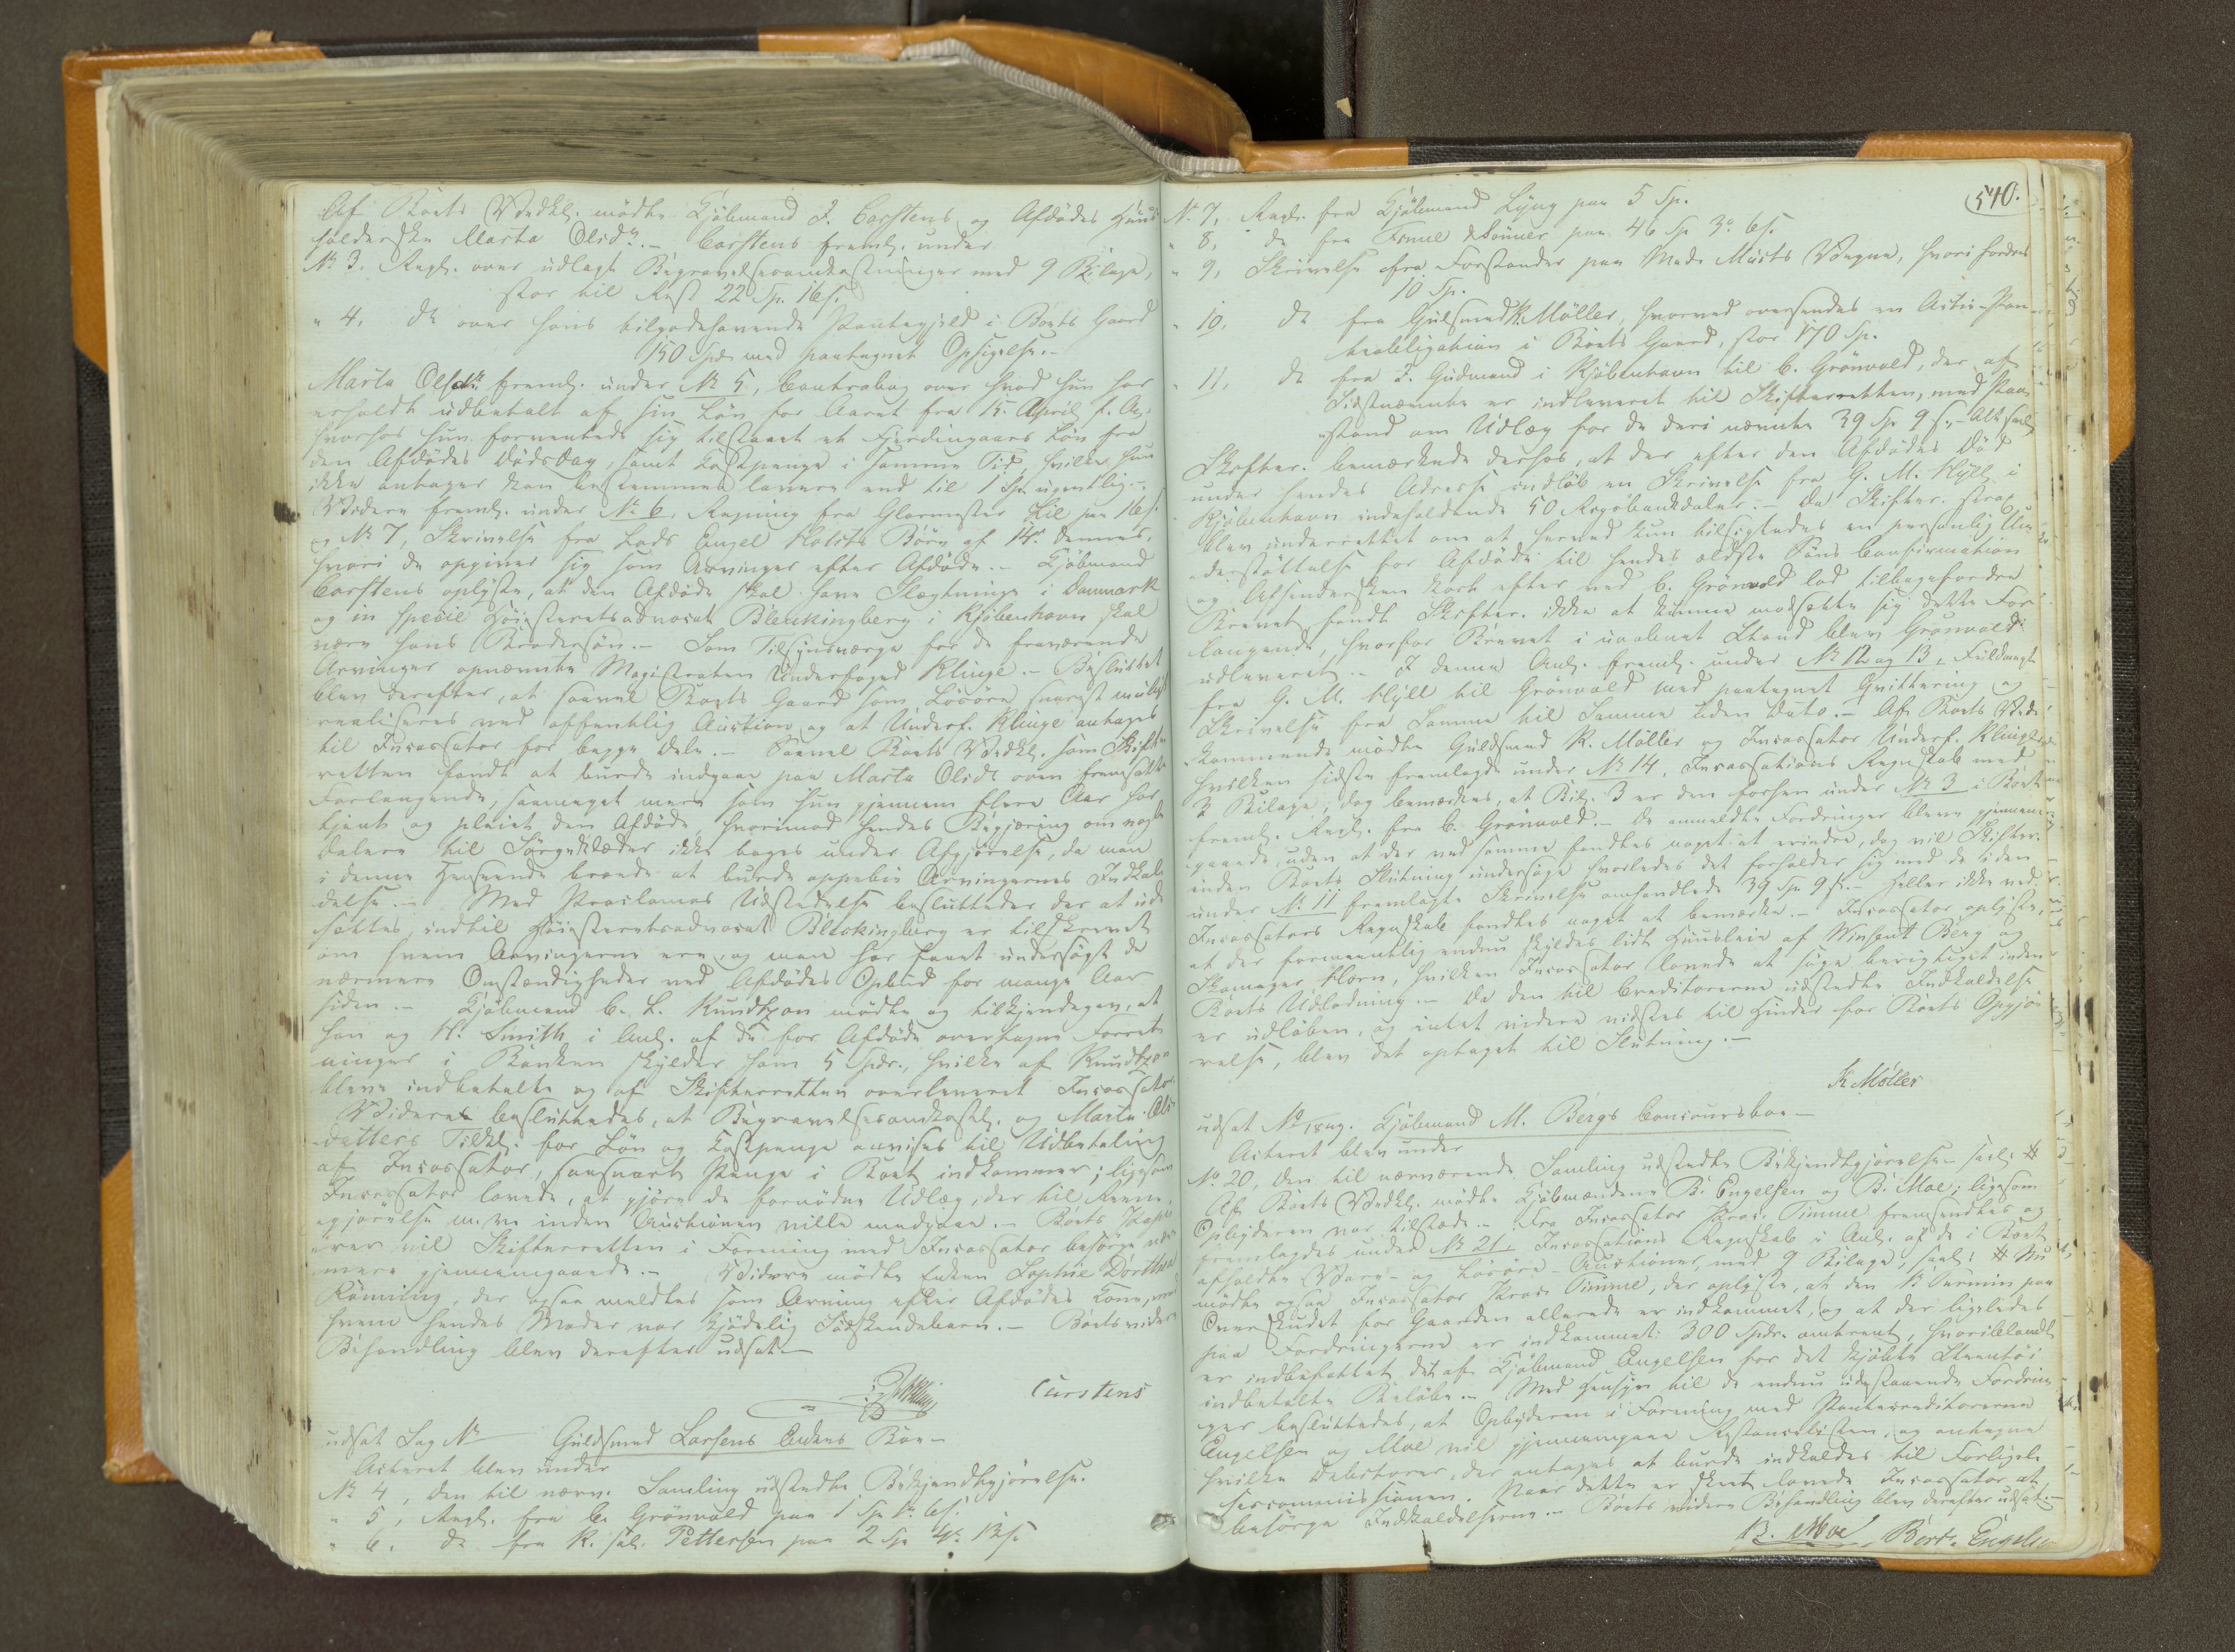 Af Boets Vedkl. mødte Kjøbmand J. Carstens og Afdødes Huus
holderske Marta Olsdr. - Carstens freml. under
No 3. Regl. over udlagt Begravelsesomkostninger med 9 Bilage,
stor til Rest 22 Sp. 16 s.
" 4. do over hans tilgodehavende Pantegjeld i Boets Gaard
150 Spd. med paategnet Opsigelse. -
Marta Olsdr. freml. under No 5, Contrabog over hvad hun har
erholdt udbetalt af sin Løn for Aaret fra 15. April f. A.
hvorhos hun formeentede sig tilstaaet et Fjerdingaars Løn fra
den Afdødes Dødsdag, samt Kostpenge i samme Tid, hvilke hun
ikke antager kan bestemmes lavere end til 1 Sp. ugentlig. -
Videre freml. under No 6, Regning fra Glarmester Lie paa 16 s.
og No 7, Skrivelse fra Lods Engel Holsts Børn af 14. dennes,
hvori de opgiver sig som Arvinger efter Afdøde. - Kjøbmand
Carstens oplyste, at den Afdøde skal have Slægtninge i Danmark
og in specie Høiesteretsadvocat Blechingberg i Kjøbenhavn skal
være hans Brodersøn. - Som Tilsynsværge for de fraværende
Arvinger opnævnte Magistraten Underfoged Klinge. - Besluttet
blev derefter, at saavel Boets Gaard som Løsøre snarest muligt
realiseres ved offentlig Auction og at Underf. Klinge antages
til Incassator for begge Dele. - Saavel Boets Vedkl. som Skifte
retten fandt at burde indgaae paa Marta Olsdr. oven fremsatte
Forlangende, saameget mere som hun gjennem flere Aar har
tjent og pleiet den Afdøde, hvorimod hendes Begjæring om nogle
Dalere til Sørgeklæder ikke toges under Afgjørelse, da man
i denne Henseende troede at burde oppebie Arvingernes Indkal
delse. - Med Proclamas Udstedelse besluttedes der at ud
sættes, indtil Høiesteretsadvocat Blechingberg er tilskrevet
om hvem Arvingerne ere, og man har faaet undersøgt de
nærmere Omstændigheder ved Afdødes Opbud for mange Aar
siden. - Kjøbmand C. L. Knudtzon mødte og tilkjendegav, at
han og H. Smith i Anl. af de for Afdøde overtagne Forret
ninger i Banken skylder ham 5 Spdr., hvilke af Knudtzon
bleve indbetalte og af Skifteretten overleveret Incassator.
Videre besluttedes, at Begravelsesomkostn. og Marta Ols
datters Tilkl. for Løn og Kostpenge anvises til Udbetaling
af Incassator, saasnart Penge i Boet indkommer; ligesom
Incassator lovede, at gjøre de fornødne Udlæg, der til Reen
gjørelse m. v. inden Auctionen ville medgaae. - Boets Papi
rer vil Skifteretten i Forening med Incassator besørge nær
mere gjennemgaaede. - Videre mødte Enken Sophie Dorthea
Röming, der ogsaa meldtes som Arving efter Afdødes Kone, med
hvem hendes Moder var kjødelig Søskendebarn. - Boets videre
Behandling blev derefter udsat. -
Carstens
udsat Sag No Guldsmed Larsens Enkes Boe -
Acteret blev under
No 4, den til nærv. Samling udstedte Bekjendtgjørelse.
" 5, Regl. fra C. Grönvold paa 1 Sp. 1 o. 6 s.
" 6, do fra K. sal. Pettersen paa 2 Sp. 4 o. 12 s.
540.
No 7, Regl. fra Kjøbmand Lyng paa 5 Sp.
" 8, do fra Finne & Sönner paa 46 Sp. 3 o. 6 s.
" 9, Skrivelse fra Forstander paa Mad. Müsts Vegne, hvori fordres
10 Sp.
" 10, do fra Gulsmed K. Möller, hvorved oversendes en Activ-Pan
teobligation i Boets Gaard, stor 170 Sp.
" 11, do fra J. Gudmand i Kjøbenhavn til C. Grönvold, der af
Sidstnævnte er indleveret til Skifteretten, med Paa
stand om Udlæg for de deri nævnte 39 Sp 9 s. - Alt saal.
Skifter. bemærkede derhos, at der efter den Afdødes Død
under hendes Adresse indløb en Skrivelse fra G. M. Hyll i
Kjøbenhavn indeholdende 50 Rigsbankdaler. - Da Skifter. strax
blev underrettet om at herved kun tilsigtedes en personlig Un
derstøttelse for Afdøde til hendes ældste Søns Confirmation
og Afsenderen kort efter ved C. Grönvold lod tilbagefordre
Brevet, fandt Skifter. ikke at kunne modsætte sig dette For
langende, hvorfor Brevet i uaabnet Stand blev Grönvold
udleveret. - I denne Anl. freml. under No 12 og 13, Fuldmagt
fra G. M. Hyll til Grönvold med paategnet Qvittering og
Skrivelse fra Samme til Samme uden Dato. - Af Boets Ved
kommende mødte Guldsmed K. Möller og Incassator Underf. Klinge,
hvilken sidste fremlagde under No 14, Incassations Regnskab med
3 Bilage, dog bemærkes, at Bil. 3 er den forhen under No 3 i Boet
freml. Regl. fra C. Grönvold. - De anmeldte Fordringer bleve gjennem
gaaede, uden at der ved samme fandtes noget at erindre, dog vil Skifter.
inden Boets Slutning undersøge hvorledes det forholder sig med de i den
under No 11 fremlagte Skrivelse omhandlede 39 Sp 9 s. - Heller ikke ved
Incassators Regnskab fandtes noget at bemærke. - Incassator oplyste,
at der formeentlig endnu skyldes lidt Huusleie af Winsent Berg og
Skomager Horn, hvilken Incassator lovede at søge berigtiget inden
Boets Udlodning. - Da den til Creditorerne udstedte Indkaldelse
er udløben, og intet videre vidstes til Hinder for Boets Opgjø
relse, blev det optaget til Slutning. -
K Möller
udsat No Kjøbmand M. Bergs Concoursboe -
Acteret blev under
No 20, den til nærværende Samling udstedte Bekjendtgjørelse saal. #
Af Boets Vedkl. mødte Kjøbmændene B. Engelsen og B. Moe; ligesom
Opbyderen var tilstede. - Fra Incassator Proc. Timme fremsendtes og
fremlagdes under No 21, Incassations Regnskab i Anl. af de i Boet
afholdte Vare- og Løsøre-Auctioner, med 9 Bilage, saal: # Nu
mødte ogsaa Incassator Proc. Timme, der oplyste, at den 1. Termin paa
Overskudet for Gaarden allerede er indkommet, og at der ligeledes
paa Fordringerne er indkommet: 300 Spdr. omtrent, hvoriblandt
er indbefattet det af Kjøbmand Engelsen for det kjøbte Steentøi
indbetalte Beløb. - Med Hensyn til de endnu udestaaende Fordrin
ger besluttedes, at Opbyderen i Forening med Pantecreditorerne
Engelsen og Moe vil gjennemgaae Restancelisten, og antegne
hvilke Debitorer, der antages at burde indkaldes til Forligel
sescommissionen. Naar dette er skeet lovede Incassator at
besørge Indkaldelserne. - Boets videre Behandling blev derefter udsat. -
B. Moe Bert. Engelsen